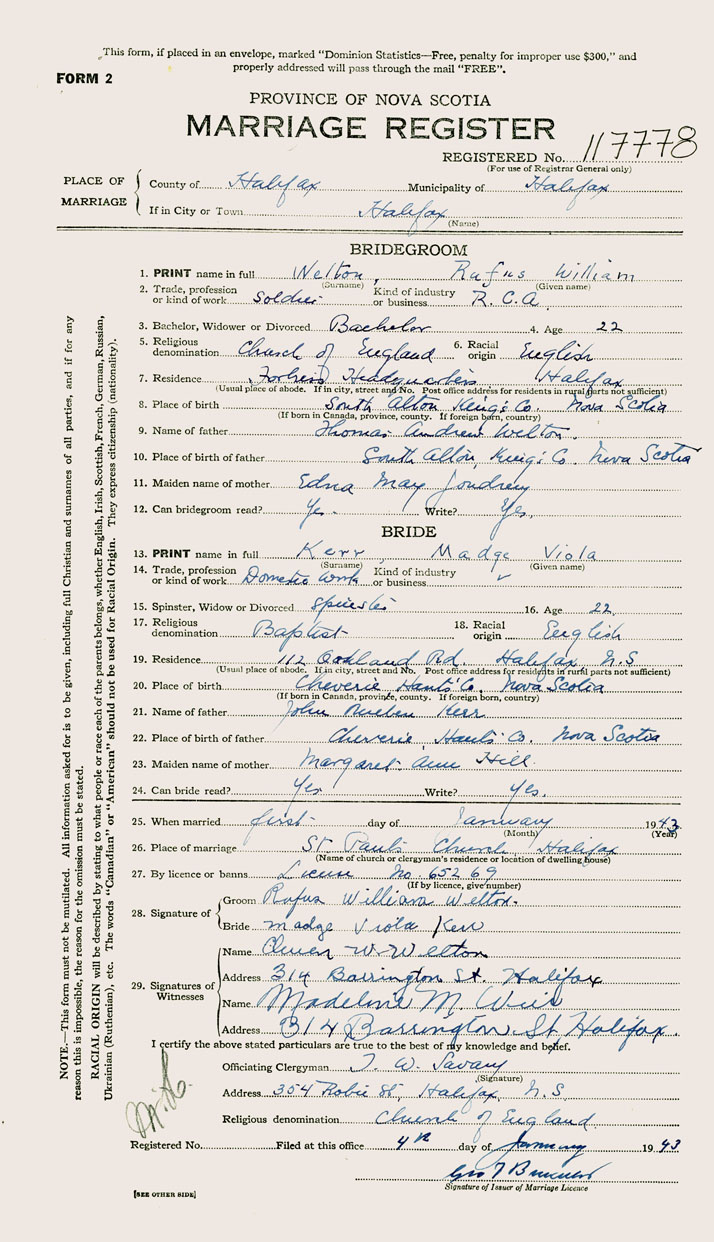 This form, if placed in an envelope, marked "Dominion Statistics—Free, penalty for improper use $300," and
properly addressed will pass through the mail "FREE".
FORM 2
PROVINCE OF NOVA SCOTIA
MARRIAGE REGISTER
REGISTERED No. 117778
(For use of Registrar General only)
PLACE OF MARRIAGE
County of Halifax Municipality of Halifax
If in City or Town Halifax
(Name)
BRIDEGROOM
1. PRINT name in full Welton, Rufus William
(Surname) (Given name)
2. Trade, profession or kind of work Soldier Kind of industry or business R.C.A.
3. Bachelor, Widower or Divorced Bachelor 4. Age 22
5. Religious denomination Church of England 6. Racial origin English
7. Residence Fortress Headquarters Halifax
(Usual place of abode. If in city, street and No. Post office address for residents in rural parts not sufficient)
8. Place of birth South Alton Kings Co. Nova Scotia
(If born in Canada, province, county. If foreign born, country)
9. Name of father Thomas Andrew Welton.
10. Place of birth of father South Alton, King's Co. Nova Scotia
11. Maiden name of mother Edna May Joudrey
12. Can bridegroom read? Yes. Write? Yes.
BRIDE
13. PRINT name in full Kerr, Madge Viola
(Surname) (Given name)
14. Trade, profession or kind of work Domestic Work Kind of industry or business ✓
15. Spinster, Widow or Divorced Spinster 16. Age 22
17. Religious denomination Baptist 18. Racial origin English
19. Residence 112 Oakland Rd. Halifax N.S
(Usual place of abode. If in city, street and No. Post office address for residents in rural parts not sufficient)
20. Place of birth Cheverie Hants Co. Nova Scotia
(If born in Canada, province, county. If foreign born, country)
21. Name of father John Kerr
22. Place of birth of father Cheverie, Hants Co. Nova Scotia
23. Maiden name of mother Margaret Ann Hill
24. Can bride read? Yes Write? Yes.
25. When married first day of January 1943
(Month) (Year)
26. Place of marriage St Paul's Church Halifax
(Name of church or clergyman's residence or location of dwelling house)
27. By licence or banns License No. 65269
(If by licence, give number)
28. Signature of
Groom Rufus William Welton.
Bride Madge Viola Kerr
29. Signatures of Witnesses
Name W Welton
Address 314 Barrington St. Halifax
Name Madeline M Weir
Address 314 Barrington St Halifax.
I certify the above stated particulars are true to the best of my knowledge and belief.
Officiating Clergyman T. W. Savary
(Signature)
Address 354 Robie St, Halifax, N.S
Religious denomination Church of England
Registered No. Filed at this office 4th day of January 1943
Geo
Signature of Issuer of Marriage Licence
[SEE OTHER SIDE]
NOTE.—This form must not be mutilated. All information asked for is to be given, including full Christian and surnames of all parties, and if for any
reason this is impossible, the reason for the omission must be stated.
RACIAL ORIGIN will be described by stating to what people or race each of the parents belongs, whether English, Irish, Scottish, French, German, Russian,
Ukrainian (Ruthenian), etc. The words "Canadian" or "American" should not be used for Racial Origin. They express citizenship (nationality).